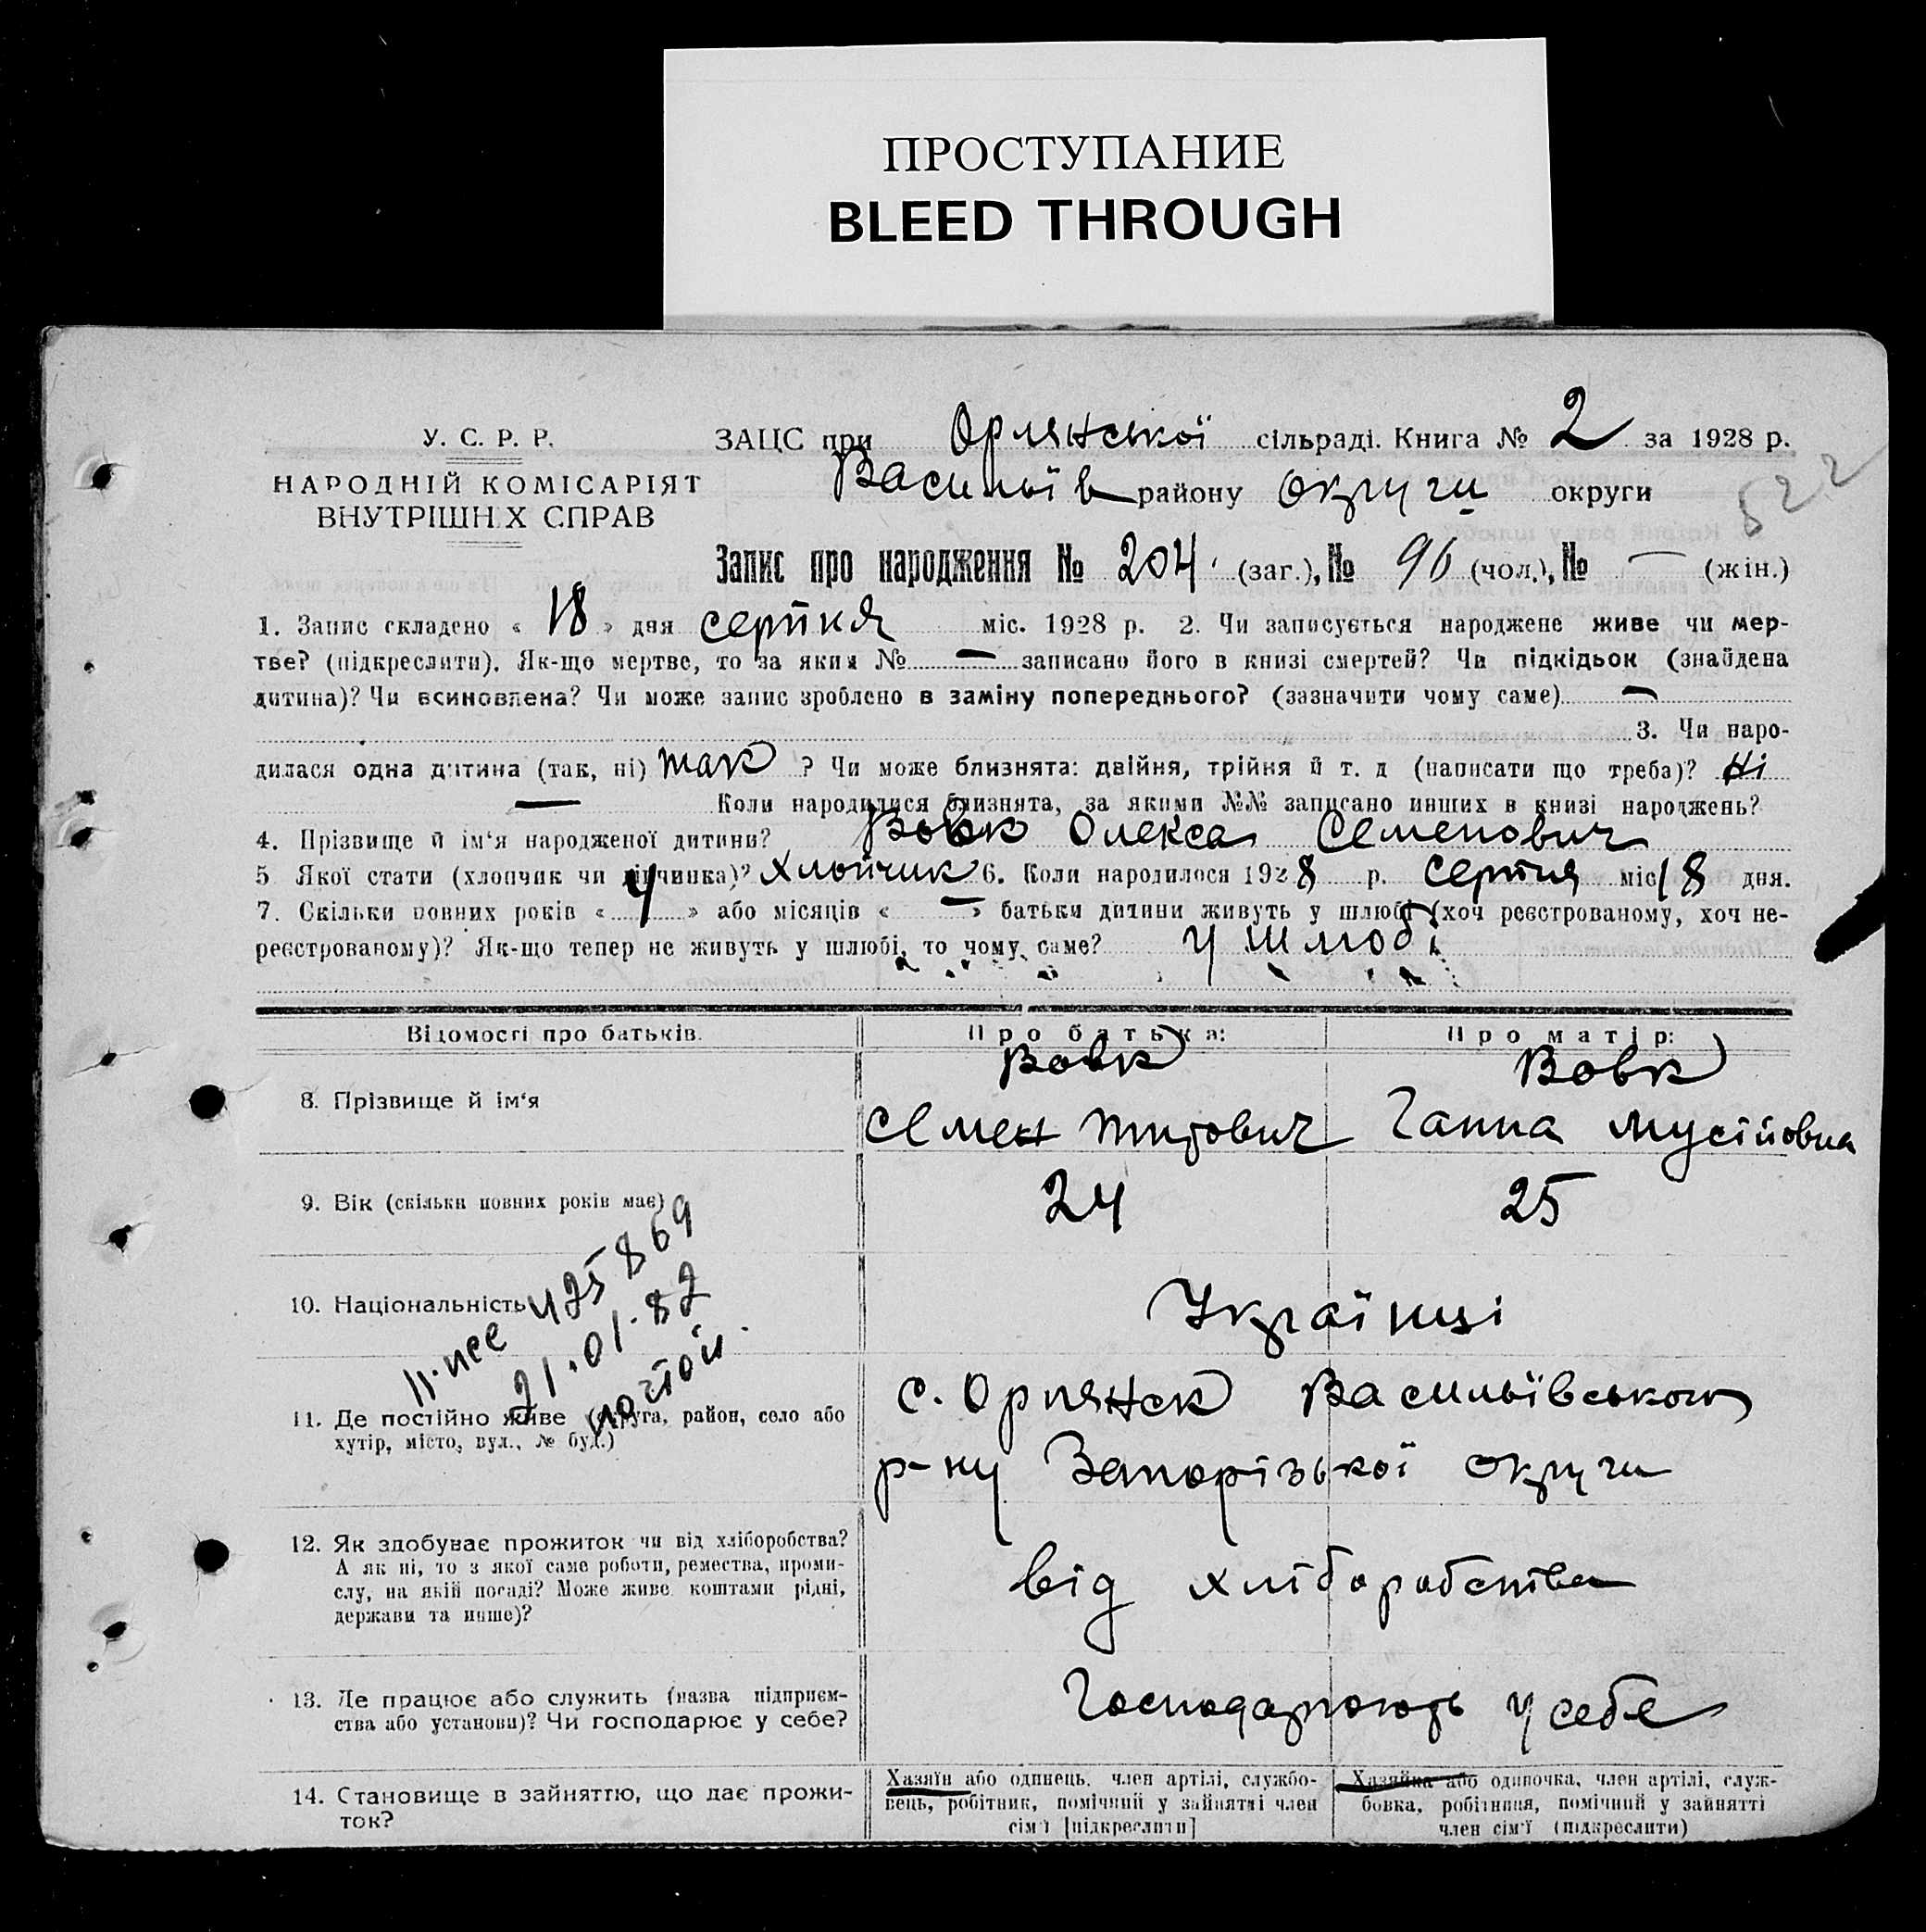 ПРОСТУПАНИЕ
BLEED THROUGH
У. С. Р. Р.
НАРОДНІЙ КОМІСАРІЯТ
ВНУТРІШН Х СПРАВ
ЗАЦС при Орлянської сільраді. Книга № 2 за 1928 р.
Василів району округи округи
522
Запис про народження № 204 (заг.), № 96 (чол.), № — (жін.)
1. Запис складено « 18 » дня серпня міс. 1928 р. 2. Чи записується народжене живе чи мер-
тве? (підкреслити). Як-що мертве, то за яким № — записано його в книзі смертей? Чи підкідьок (знайдена
дитина)? Чи всиновлена? Чи може запис зроблено в заміну попереднього? (зазначити чому саме) —
3. Чи наро-
дилася одна дитина (так, ні) так ? Чи може близнята: двійня, трійня й т. д (написати що треба)? Ні
— Коли народилися близнята, за якими №№ записано инших в книзі народжень?
4. Прізвище й ім‘я народженої дитини? Вовк Олекса Семенович
5 Якої стати (хлопчик чи дівчинка)? Хлопчик 6. Коли народилося 1928 р. серпня міс 18 дня.
7. Скільки повних років « 4 » або місяців « — » батьки дитини живуть у шлюбі (хоч реєстрованому, хоч не-
реєстрованому)? Як-що тепер не живуть у шлюбі, то чому саме? у шлюбі
Відомості про батьків. Про батька: Про матір:
8. Прізвище й ім‘я Вовк Семен Титович Вовк Ганна Мусіївна
9. Вік (скільки повних років має) 24 25
10. Національність Українці
425869
21.01.82
почтой.
11. Де постійно живе (округа, район, село або
хутір, місто, вул., № буд.)
с. Орлянск Васильївського
р-ну Запорізької округи
12. Як здобуває прожиток чи від хліборобства?
А як ні, то з якої саме роботи, ремества, проми-
слу, на якій посаді? Може живе коштами рідні,
держави та инше)?
від хліборобства
13. Де працює або служить (назва підприєм-
ства або установи)? Чи господарює у себе?
Господарюють у себе
14. Становище в зайняттю, що дає прожи-
ток?
Хазяїн або одинець, член артілі, службо-
вець, робітник, помічний у зайнятті член
сім‘ї [підкреслити]
Хазяйка або одиночка, член артілі, служ-
бовка, робітниця, помічний у зайнятті
член сім‘ї (підкреслити)